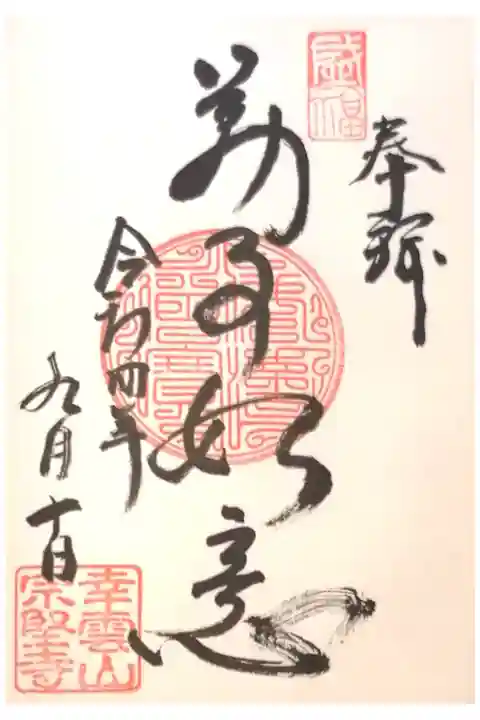 奉拝
萬事如意
令和四年
九月十日
幸雲山
宗堅寺